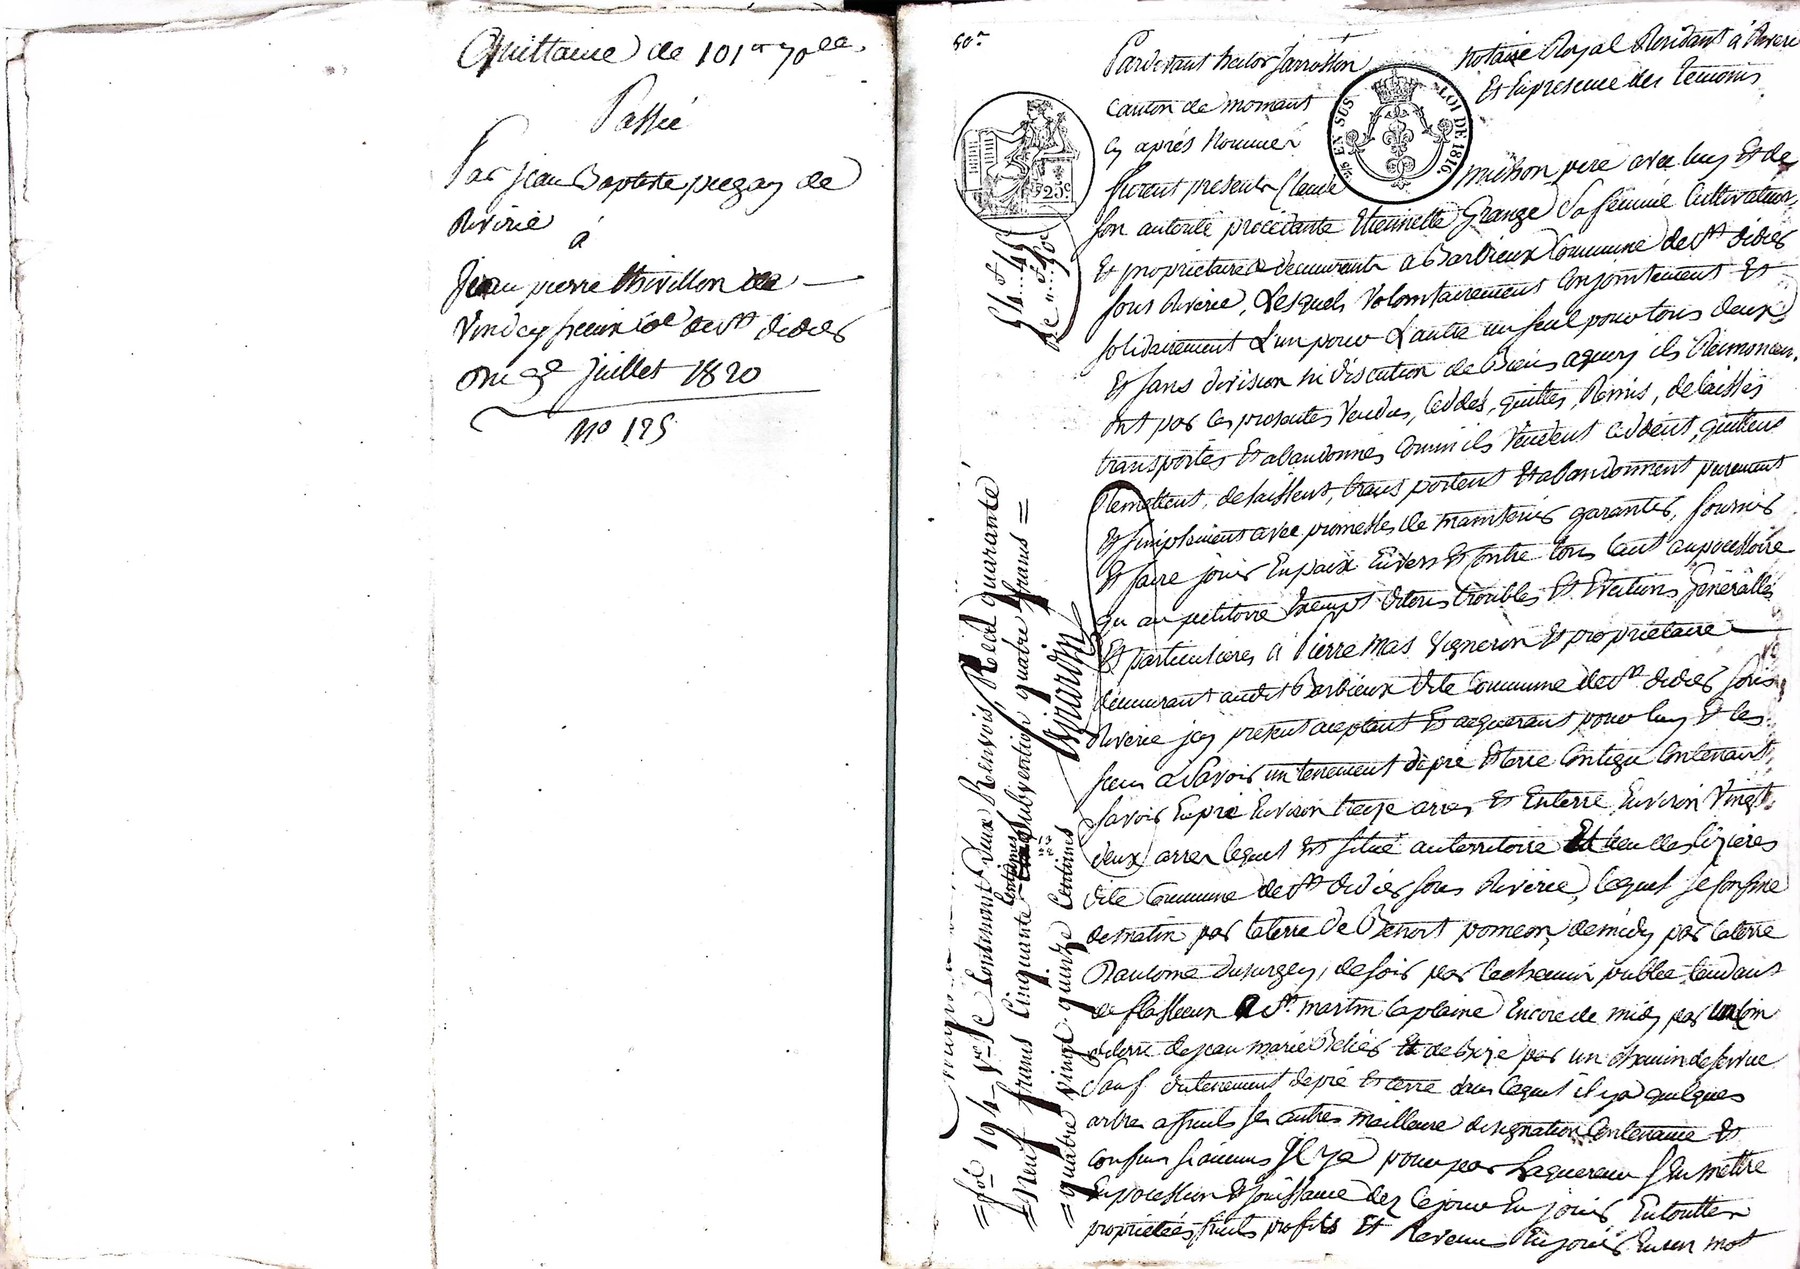 Quittance de 101 fr 70 ce.
Passée
Par jean Baptiste pregay de
Riverie
à
jean pierre thivillon de
Vindry freux cne de st didier
Du 9e juillet 1820
No 125
50 c
Pardevant hector jarrosson notaire Royal Résidant à Riverie
canton de mornant Et En présence des temoins
cy après nommés
EN SUS LOI DE 1816
25 c
furent présents Claude michon père avec luy Et de
son autorité procédante Etiennette Grange Sa femme Cultivateurs
Et propriétaires demeurants a Barbieux Commune de st didier
sous Riverie, Lesquels Volontairement Conjointement Et
solidairement L'un pour L'autre un seul pour tous deux
Et sans division ni discution de Biens aquoy ils Renoncent
ont par ces presentes Vendus, Ceddés, quittés, Remis, delaissés
transportés Et abandonnés Comm'ils Vendent ceddent, quittent
Remettent, delaissent, transportent Et abandonnent purement
Et simplement avec promesses de maintenir garantir, fournir
Et faire jouir En paix Envers Et Contre tous tant au possessoire
qu au petitoire Exempt de tous troubles Et Evictions Générálles
Et particulieres à Pierre Mas Vigneron Et propriétaire
demeurant audit Barbieux dite Commune de st didier sous
Riverie jcy present aceptant Et acquerant pour luy Et les
siens a Savoir un tenement de pré Et terre Contigu Contenant
savoir En pré Environ treize ares Et En terre Environ Vingt
deux ares lequel Est situé au territoire Et lieu des lizieres
dite Commune de st didier sous Riverie, lequel se Confine
de matin par la terre de Benoit poncon, de midy par la terre
d'antoine dusurgey, de soir par le chemin public tendant
de st martin la plaine Encore de midy par un Coin
de terre de jean marie Et de Bize par un chemin de servue
Sauf du tenement de pré Et terre dans lequel il y a quelques
arbres a fruits ses autres meilleure designation Contenance Et
confins si aucuns Il y a pour par L'aquereur S'en mettre
En possession Et jouissance dez Ce jour En jouir En toutte
proprieté fruits profits Et Revenus En jouir En un mot
fol 194 vo Contenant deux Renvois, Recu quarante
Neuf francs Cinquante Centimes Subvention quatre francs
quatre vingt quinze Centimes